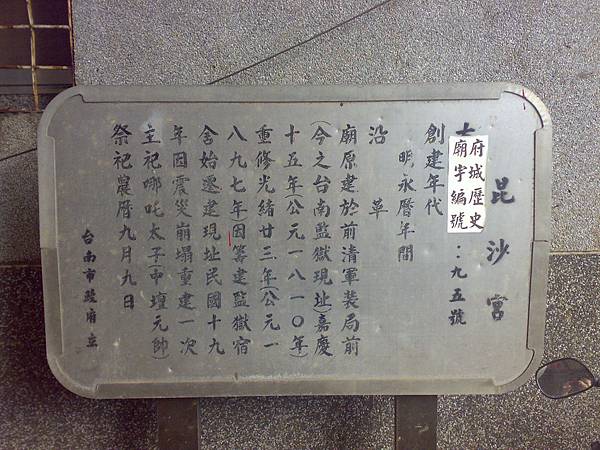 昆沙宮
府城歷史
廟宇編號：九五號
創建年代
明永曆年間
沿革
廟原建於前清軍裝局前
(今之台南監獄現址)嘉慶
十五年公元一八一〇年)
重修光緒廿三年(公元一
八九七年因籌建監獄宿
舍始遷建現址民國十九
年因震災崩塌重建一次
主祀哪吒太子(中壇元帥)
祭祀農曆九月九日
台南市政府立